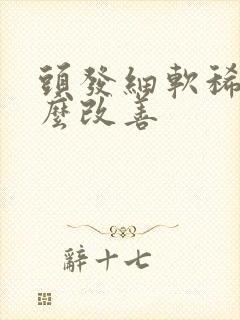 頭發細軟稀
麼改善
辭十七